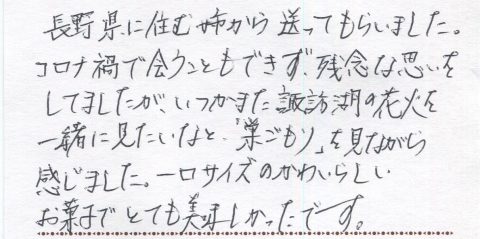 長野県に住む姉から送ってもらいました。
コロナ禍で会うこともできず、残念な思いを
してましたが、いつかまた諏訪湖の花火を
一緒に見たいなと、「巣ごもり」を見ながら
感じました。一口サイズのかわいらしい
お菓子でとても美味しかったです。